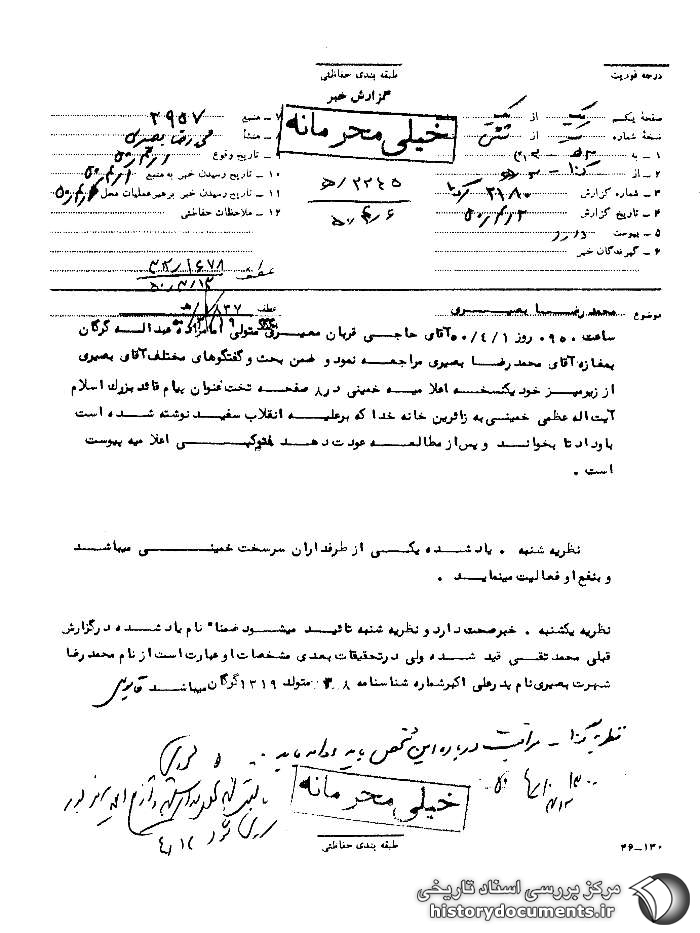 درجه فوریت
طبقه بندی حفاظتی
گزارش خبر
خیلی محرمانه
صفحه یک از یک
نسخه شماره از شش
۱ - به
۲ - از
۳ - شماره گزارش ۳۱۸۰
۴ - تاریخ گزارش
۵ - پیوست دارد
۶ - گیرندگان خبر
۷ - منبع ۲۹۵۷
منشأ محمدرضا بصیری
تاریخ وقوع
۱۰ - تاریخ رسیدن خبر به منبع
۱۱ - تاریخ رسیدن خبر به رهبر عملیات محل
۱۲ - ملاحظات حفاظتی
عطف
عطف
موضوع محمد رضا بصیری
ساعت ۰۹۵۰ روز ۵۰/۴/۱ آقای حاجی قربان معیری متولی امامزاده عبداله گرگان
بمغازه آقای محمد رضا بصیری مراجعه نمود و ضمن بحث و گفتگوهای مختلف آقای بصیری
از زیر میز خود یکنسخه اعلامیه خمینی در ۸ صفحه تحت عنوان پیام قائد بزرگ اسلام
آیت اله عظمی خمینی به زائرین خانه خدا که بر علیه انقلاب سفید نوشته شده است
باو داد تا بخواند و پس از مطالعه عودت دهد فتوکپی اعلامیه پیوست
است .
نظریه شنبه . یاد شده یکی از طرفداران سرسخت خمینی میباشد
و بنفع او فعالیت مینماید .
نظریه یکشنبه . خبر صحت دارد و نظریه شنبه تائید میشود ضمنا" نام یاد شده در گزارش
قبلی محمد تقی قید شده ولی در تحقیقات بعدی مشخصات او عبارت است از نام محمد رضا
شهرت بصیری نام پدر علی اکبر شماره شناسنامه ۸ متولد ۱۳۱۹ گرگان میباشد
مراقبت درباره این شخص باید ادامه یابد
خیلی محرمانه
طبقه بندی حفاظتی
۳۶-۱۳۰
مرکز بررسی اسناد تاریخی
historydocuments.ir